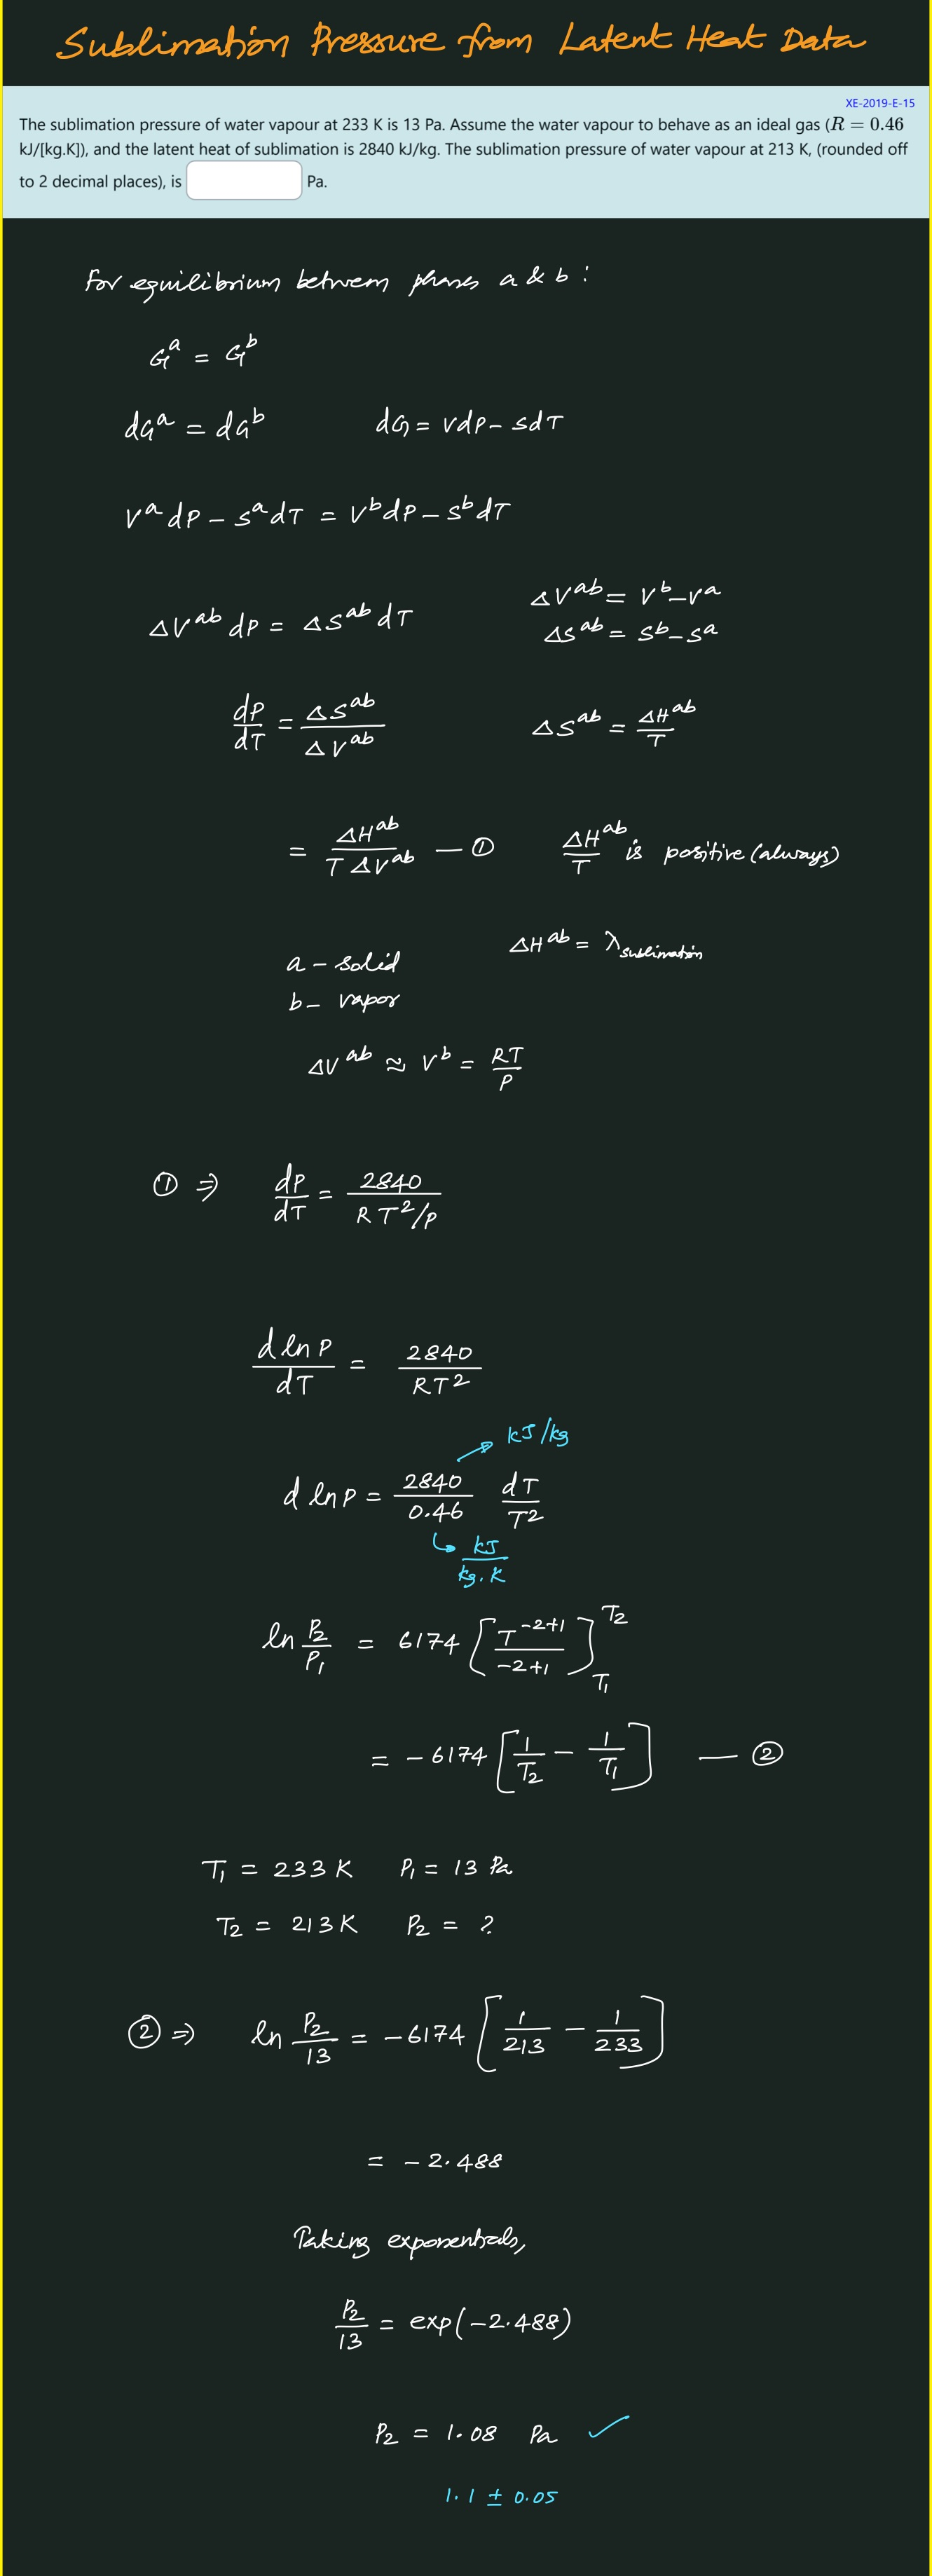 Sublimation Pressure from Latent Heat Data
XE-2019-E-15
The sublimation pressure of water vapour at 233 K is 13 Pa. Assume the water vapour to behave as an ideal gas (R = 0.46
kJ/[kg.K]), and the latent heat of sublimation is 2840 kJ/kg. The sublimation pressure of water vapour at 213 K, (rounded off
to 2 decimal places), is Pa.
For equilibrium between phases a & b :
G^a = G^b
dG^a = dG^b dG = VdP - SdT
V^a dP - S^a dT = V^b dP - S^b dT
ΔV^ab = V^b - V^a
ΔV^ab dP = ΔS^ab dT
ΔS^ab = S^b - S^a
dP/dT = ΔS^ab/ΔV^ab ΔS^ab = ΔH^ab/T
= ΔH^ab/(T ΔV^ab) — ① ΔH^ab/T is positive (always)
ΔH^ab = λ_sublimation
a - solid
b - vapor
ΔV^ab ≈ V^b = RT/P
① ⇒ dP/dT = 2840/(RT²/P)
d ln P/dT = 2840/RT²
kJ/kg
d ln P = 2840/0.46 dT/T²
kJ/kg.K
ln P₂/P₁ = 6174 [T^(-2+1)/(-2+1)]_T₁^T₂
= -6174 [1/T₂ - 1/T₁] — ②
T₁ = 233 K P₁ = 13 Pa
T₂ = 213 K P₂ = ?
② ⇒ ln P₂/13 = -6174 [1/213 - 1/233]
= -2.488
Taking exponentials,
P₂/13 = exp(-2.488)
P₂ = 1.08 Pa ✓
1.1 ± 0.05